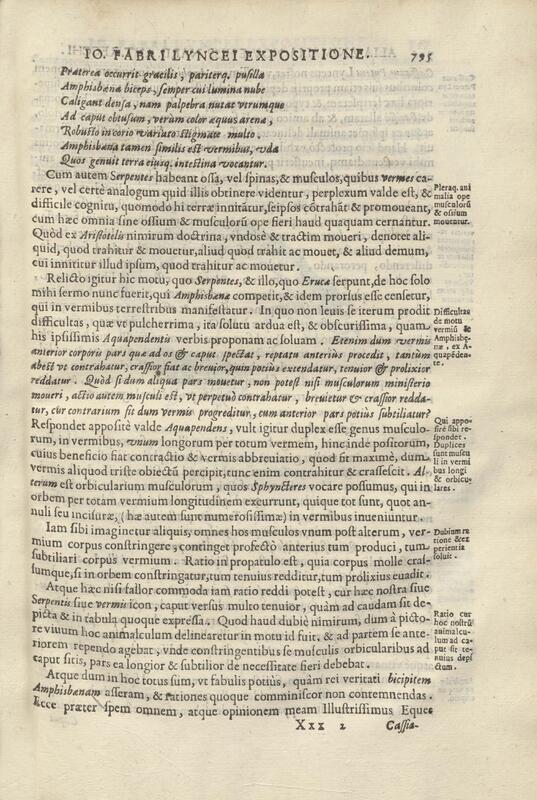 IO. FABRI LYNCEI EXPOSITIONE. 795
Præterea occurrit gracilis, pariterq. pusilla
Amphisbæna biceps, semper cui lumina nube
Caligant densa, nam palpebra nutat vtrumque
Ad caput obtusum, verùm color æquus arenæ,
Robusto in corio variato stigmate multo.
Amphisbæna tamen similis est vermibus, vda
Quos genuit terra eiusq. intestina vocantur.
Cum autem Serpentes habeant ossa, vel spinas, & musculos, quibus vermes ca-
rere, vel certè analogum quid illis obtinere videntur, perplexum valde est, &
difficile cognitu, quomodo hi terræ innitãtur, seipsos cõtrahãt & promoueant,
cum hæc omnia sine ossium & musculorũ ope fieri haud quaquam cernantur.
Quòd ex Aristotilis nimirum doctrina, vndosè & tractim moueri, denotet ali-
quid, quod trahitur & mouetur, aliud quod trahit ac mouet, & aliud demum,
cui innititur illud ipsum, quod trahitur ac mouetur.
Pleraq. ani
malia ope
musculorũ
& ossium
mouentur.
Relicto igitur hic motu, quo Serpentes, & illo, quo Erucæ serpunt, de hoc solo
mihi sermo nunc fuerit, qui Amphisbænæ competit, & idem prorsus esse censetur,
qui in vermibus terrestribus manifestatur. In quo non leuis se iterum prodit
difficultas, quæ vt pulcherrima, ita solutu ardua est, & obscurissima, quam
his ipsissimis Aquapendentis verbis proponam ac soluam. Etenim dum vermis
anterior corporis pars quæ ad os & caput spectat, reptatu anterius procedit, tantùm
abest vt contrahatur, crassior fiat ac breuior, quin potius extendatur, tenuior & prolixior
reddatur. Quòd si dum aliqua pars mouetur, non potest nisi musculorum ministerio
moueri, actio autem musculi est, vt perpetuò contrahatur, breuietur & crassior redda-
tur, cur contrarium sit dum vermis progreditur, cum anterior pars potius subtiliatur?
Difficultas
de motu
vermiũ &
Amphisb-
næ, ex A-
quapeden-
te.
Respondet appositè valde Aquapendens, vult igitur duplex esse genus musculo-
rum, in vermibus, vnum longorum per totum vermem, hinc inde positorum,
cuius beneficio fiat contractio & vermis abbreuiatio, quod fit maximè, dum
vermis aliquod triste obiectũ percipit, tunc enim contrahitur & crassescit. Al-
terum est orbicularium musculorum, quos Sphyncteres vocare possumus, qui in
orbem per totam vermium longitudinem excurrunt, quique tot sunt, quot an-
nuli seu incisuræ, (hæ autem sunt numerosissimæ) in vermibus inueniuntur.
Qui appo-
sitè sibi re-
spondet.
Duplices
sunt muscu
li in vermi
bus longi
& orbicu-
lares.
Iam sibi imaginetur aliquis, omnes hos musculos vnum post alterum, ver-
mium corpus constringere, continget profectò anterius tum produci, tum
subtiliari corpus vermium. Ratio in propatulo est, quia corpus molle cras-
sumque, si in orbem constringatur, tum tenuius redditur, tum prolixius euadit.
Dubium ra
tione & ex
perientia
soluit.
Atque hæc nisi fallor commoda iam ratio reddi potest, cur hæc nostra siue
Serpentis siue vermis icon, caput versus multo tenuior, quàm ad caudam sit de-
picta & in tabula quoque expressa. Quod haud dubiè nimirum, dum à picto-
re viuum hoc animalculum delinearetur in motu id fuit. & ad partem se ante-
riorem rependo agebat, vnde constringentibus se musculis orbicularibus ad
caput sitis, pars ea longior & subtilior de necessitate fieri debebat.
Ratio cur
hoc nostrũ
animalcu-
lum ad ca-
put sit te-
nuius depi
ctum.
Atque dum in hoc totus sum, vt fabulis potiùs, quàm rei veritati bicipitem
Amphisbænam asseram, & rationes quoque comminiscor non contemnendas.
Ecce præter spem omnem, atque opinionem meam Illustrissimus Eques
Xxx 2 Cassia-